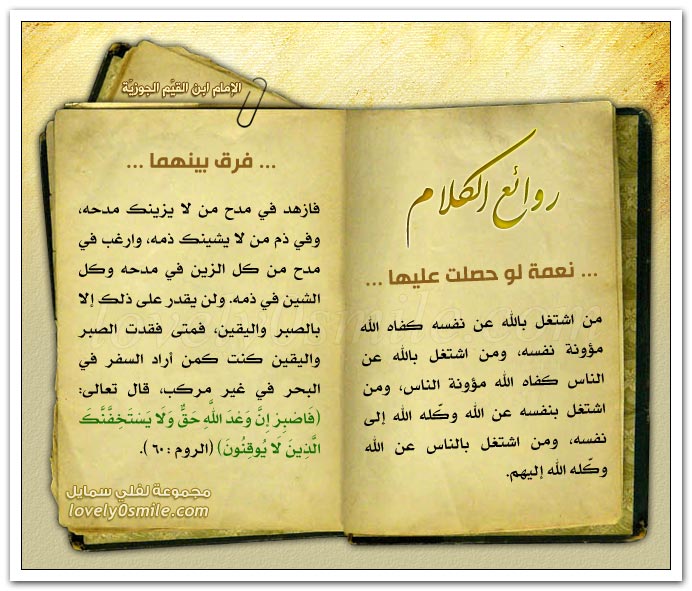 الإمام ابن القيّم الجوزيّة
روائع الكلام
... نعمة لو حصلت عليها ...
من اشتغل بالله عن نفسه كفاه الله
مؤونة نفسه، ومن اشتغل بالله عن
الناس كفاه الله مؤونة الناس، ومن
اشتغل بنفسه عن الله وكّله الله إلى
نفسه، ومن اشتغل بالناس عن الله
وكّله الله إليهم.
... فرق بينهما ...
فازهد في مدح من لا يزينك مدحه،
وفي ذم من لا يشينك ذمه، وارغب في
مدح من كل الزين في مدحه وكل
الشين في ذمه. ولن يقدر على ذلك إلا
بالصبر واليقين، فمتى فقدت الصبر
واليقين كنت كمن أراد السفر في
البحر في غير مركب، قال تعالى:
(فَاصْبِرْ إِنَّ وَعْدَ اللَّهِ حَقٌّ وَلَا يَسْتَخِفَّنَّكَ
الَّذِينَ لَا يُوقِنُونَ) (الروم : ٦٠ ).
مجموعة لفلي سمايل
lovely0smile.com
lovely0smile.com